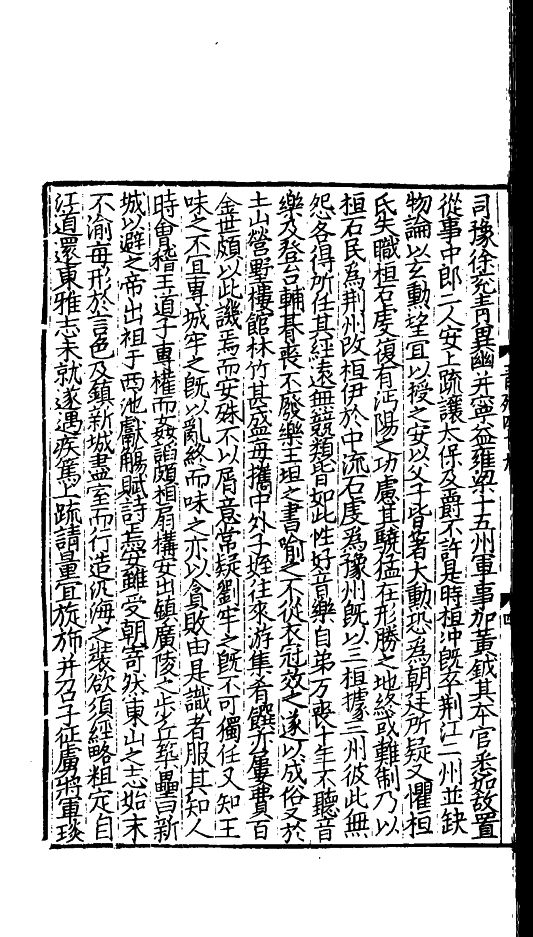 司豫徐兖青冀幽并寧益雍梁十五州軍事加黃鉞其本官悉如故置
從事中郎二人安上疏讓太保及爵不許是時桓沖旣卒荆江二州並缺
物論以玄勳望宜以授之安以父子皆著大勳恐爲朝廷所疑又懼桓
氏失職桓石虔復有沔陽之功慮其驍猛在形勝之地終或難制乃以
桓石民爲荆州改桓伊於中流石虔爲豫州旣以三桓據三州彼此無
怨各得所任其經遠無競類皆如此性好音樂自弟万喪十年不聽音
樂及登台輔朞喪不廢樂王坦之書喻之不從衣冠效之遂以成俗又於
土山營野樓館林竹甚盛每攜中外子姪往來游集肴饌亦屢費百
金世頗以此譏焉而安殊不以屑意常疑劉牢之旣不可獨任又知王
味之不宜專城牢之旣以亂終而味之亦以貪敗由是識者服其知人
時會稽王道子專權而姦諂頗相扇構安出鎮廣陵之步丘築壘曰新
城以避之帝出祖于西池獻觴賦詩焉安雖受朝寄然東山之志始末
不渝每形於言色及鎮新城盡室而行造汎海之裝欲須經略粗定自
江道還東雅志未就遂遇疾篤上疏請量宜旋旆并召子征虜將軍琰